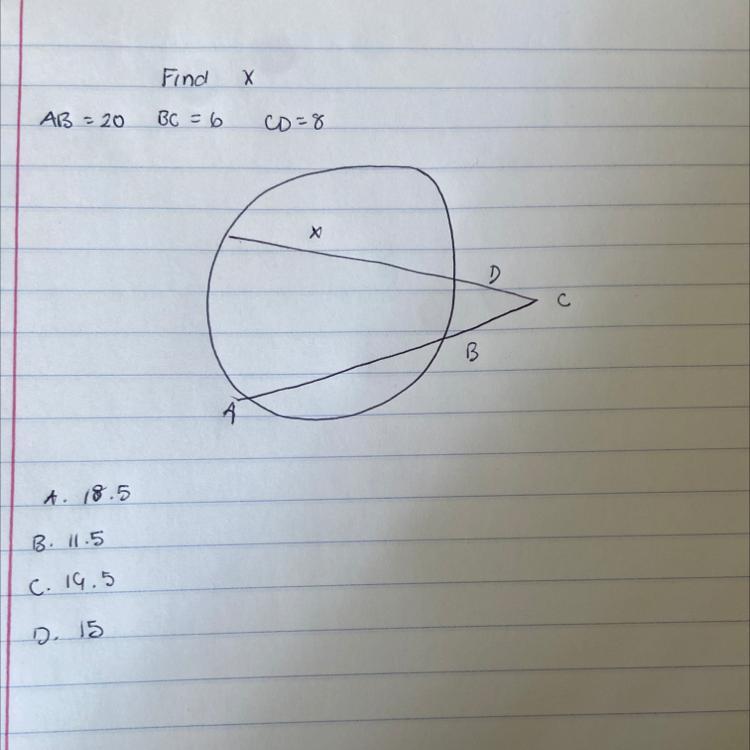 Find x
AB = 20 BC = 6 CD = 8
x
D
C
B
A
A. 18.5
B. 11.5
C. 19.5
D. 15